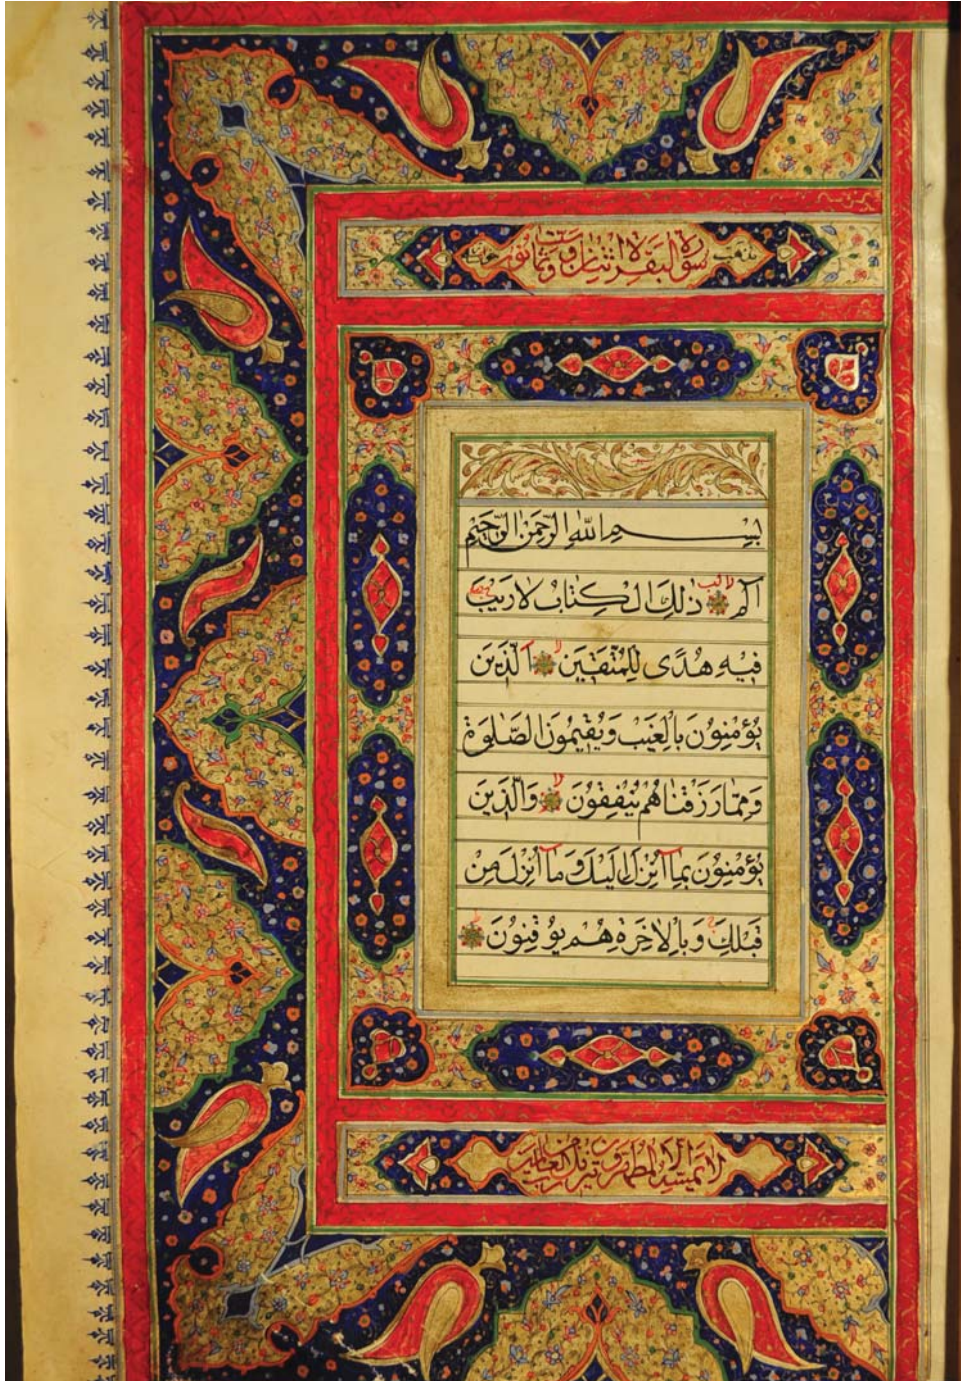 سورة البقرة مائتان وست وثمانون
بسم الله الرحمن الرحيم
الم ذٰلِكَ الْكِتَابُ لَا رَيْبَ
فِيهِ هُدًى لِلْمُتَّقِينَ اَلَّذِينَ
يُؤْمِنُونَ بِالْغَيْبِ وَيُقِيمُونَ الصَّلٰوةَ
وَمِمَّا رَزَقْنَاهُمْ يُنْفِقُونَ وَالَّذِينَ
يُؤْمِنُونَ بِمَآ اُنْزِلَ اِلَيْكَ وَمَآ اُنْزِلَ مِنْ
قَبْلِكَ وَبِالْاٰخِرَةِ هُمْ يُوقِنُونَ
لا يمسه الا المطهرون تنزيل من رب العالمين